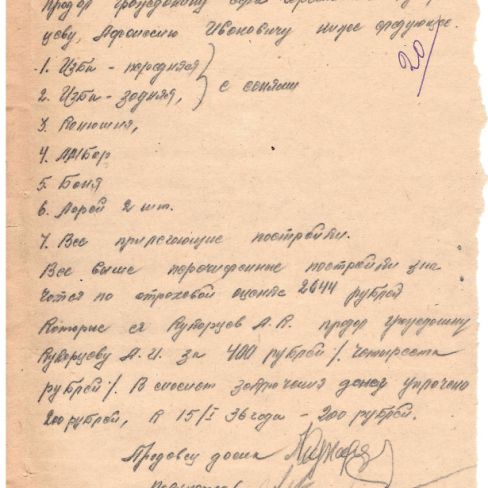 продал гражданину
цеву, Афонасию Ивановичу ниже следующее.
20
1. Изба - передняя
2. Изба - задняя, } с сенями
3. Конюшня,
4. Амбар
5. Баня
6. Ларей 2 шт.
7. Все прилегающие постройки.
Все выше перечисленные постройки зна
чатся по страховой оценке 2644 рублей
Которые я Купорцев А. продал гражданину
Купорцеву А. И. за 400 рублей /. Четыреста
рублей /. В задатчения денег упрочено
200 рублей, к 15/I 36 года - 200 рублей.
Продовец дома